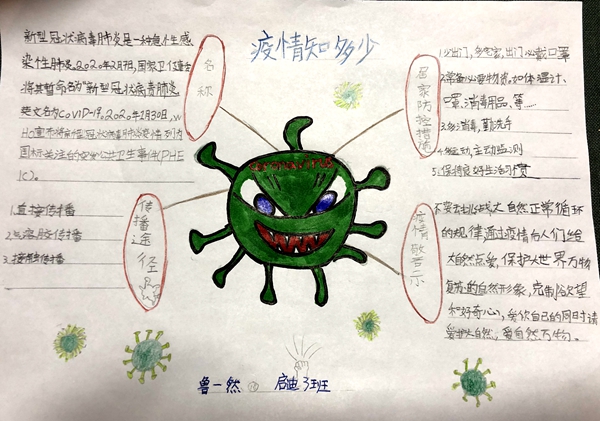 疫情知多少
名称
新型冠状病毒肺炎是一种急性感
染性肺炎。2020年2月7日,国家卫健委
将其暂命名为"新型冠状病毒肺炎
英文名为COVID-19。2020年1月30日,W
HO宣布将新型冠状病毒肺炎疫情列为
国际关注的突发公共卫生事件(PHE
IC)。
传播途径
1.直接传播
2.气溶胶传播
3.接触传播
Coronavirus
居家防控措施
1.少出门,多宅家,出门必戴口罩
2.准备必要物资,如体温计、
口罩、消毒用品、等……
3.多消毒,勤洗手
4.多运动,主动监测
5.保持良好生活习惯
疫情敬告示
不要去挑战大自然正常循环
的规律通过疫情向人们给
大自然点爱,保护大世界万物
复苏的自然形象,克制欲望
和好奇心,爱你自己的同时请
爱护大自然,爱自然万物。
鲁一然 启迪3班